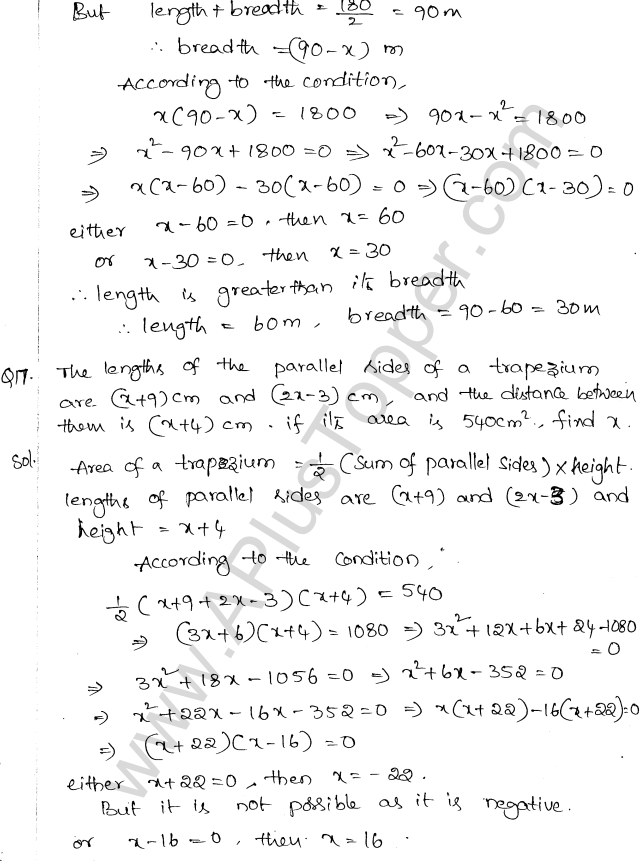 But length + breadth = 180/2 = 90m
∴ breadth = (90-x) m
According to the condition,
x(90-x) = 1800 ⇒ 90x - x² = 1800
⇒ x² - 90x + 1800 = 0 ⇒ x² - 60x - 30x + 1800 = 0
⇒ x(x-60) - 30(x-60) = 0 ⇒ (x-60)(x-30) = 0
either x-60 = 0, then x = 60
or x-30 = 0, then x = 30
∴ length is greater than its breadth
∴ length = 60m, breadth = 90-60 = 30m
Q17. The lengths of the parallel sides of a trapezium
are (x+9)cm and (2x-3)cm, and the distance between
them is (x+4) cm. if its area is 540cm², find x.
Sol. Area of a trapezium = 1/2 (Sum of parallel sides) × height.
lengths of parallel sides are (x+9) and (2x-3) and
height = x+4
According to the condition,
1/2 (x+9+2x-3)(x+4) = 540
⇒ (3x+6)(x+4) = 1080 ⇒ 3x² + 12x + 6x + 24 - 1080
= 0
⇒ 3x² + 18x - 1056 = 0 ⇒ x² + 6x - 352 = 0
⇒ x² + 22x - 16x - 352 = 0 ⇒ x(x+22) - 16(x+22) = 0
⇒ (x+22)(x-16) = 0
either x+22 = 0, then x = -22.
But it is not possible as it is negative.
or x-16 = 0, then x = 16.
www.APlusTopper.com